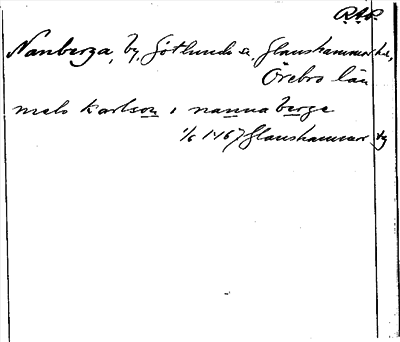 R.A.P.
Nanberga, by, Götlunda sn, Glanshammars hd,
Örebro län
mels karlson i nanna berge
1/6 1467 Glanshammar